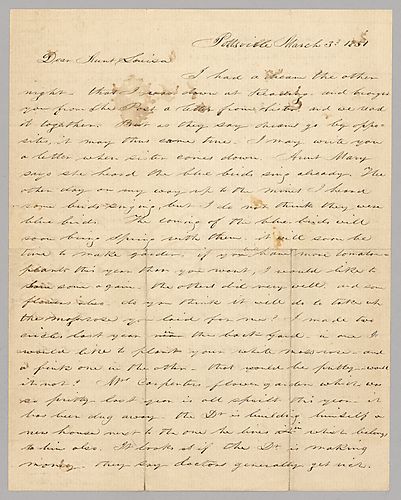 Pottsville March 3d 1851
Dear Aunt Louisa
I had a dream the other
night that I was down at Reading, and brought
you from the Post a letter from and we read
it together. But as they say dreams go by oppo-
sites, it may thus come true. I may write you
a letter when sister comes down. Aunt Mary
says she heard the blue birds sing already. The
other day on my way up to the mount I heard
some birds singing, but I do not think they were
blue birds. The coming of the blue birds will
soon bring Spring with them. it will soon be
time to make garden, if you have more tomato
plants this year than you want, I would like to
some again. the others did very well, and some
flowers also. do you think it will do to take up
the moss rose you laid for me? I made two
circles last year in the back yard. in one I
would like to plant your white moss rose and
a pink one in the other. that would be pretty would
it not? Mrs Carpenters flower garden which was
so pretty last year is all spoilt this year. it
has been dug away. the Dr is building himself a
new house next to the one he lives in which belongs
to him also. It looks as if the Dr is making
money. they say doctors generally get rich.